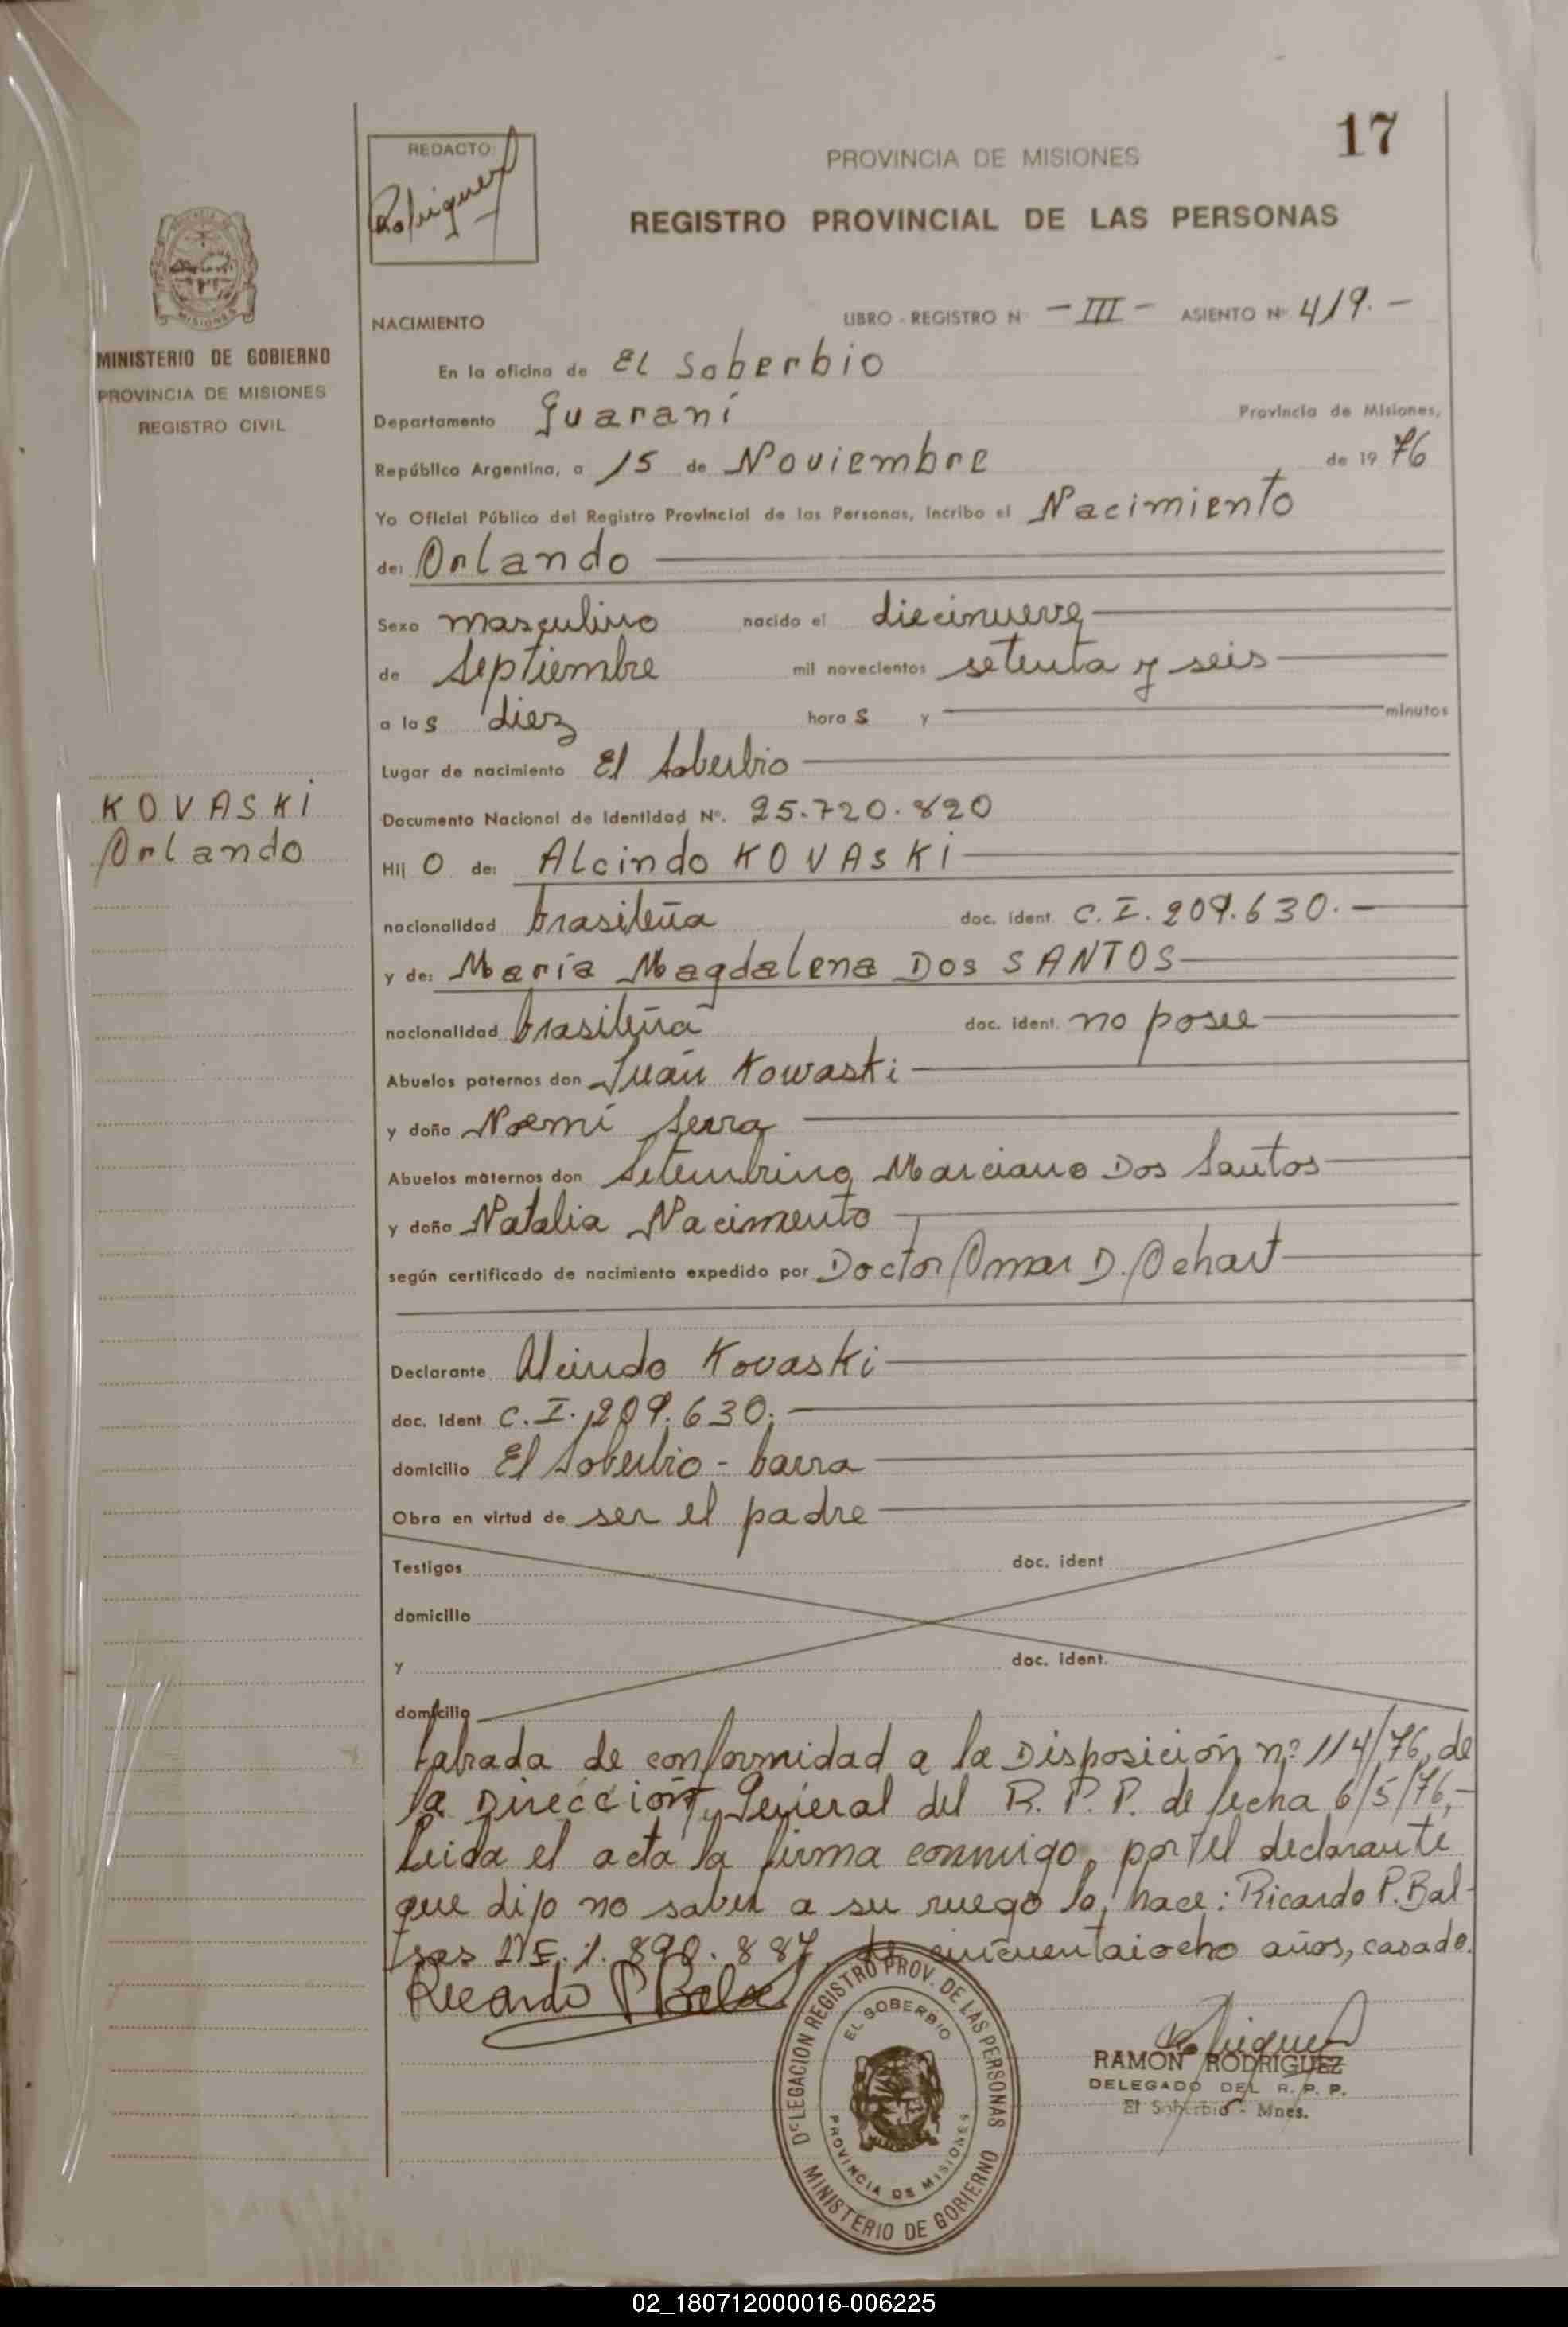 17
REDACTO:
Rodriguez
PROVINCIA DE MISIONES
REGISTRO PROVINCIAL DE LAS PERSONAS
MINISTERIO DE GOBIERNO
PROVINCIA DE MISIONES
REGISTRO CIVIL
NACIMIENTO LIBRO - REGISTRO N° - III - ASIENTO N° 419. -
En la oficina de El Soberbio
Departamento Guaraní Provincia de Misiones,
República Argentina, a 15 de Noviembre de 19 76
Yo Oficial Público del Registro Provincial de las Personas, Incribo el Nacimiento
de: Orlando
Sexo masculino nacido el diecinueve
de Septiembre mil novecientos setenta y seis
a las diez horas y minutos
Lugar de nacimiento El Soberbio
KOVASKI
Orlando
Documento Nacional de Identidad N°. 25.720.820
Hijo de: Alcindo KOVASKI
nacionalidad brasileña doc. ident. C.I. 209.630. -
y de: María Magdalena Dos SANTOS
nacionalidad brasileña doc. ident. no posee
Abuelos paternos don Juan Kowaski
y doña Noemí Serra
Abuelos maternos don Setembrino Marciano Dos Santos
y doña Natalia Nacimento
según certificado de nacimiento expedido por Doctor Omar D. Ochart
Declarante Alcindo Kovaski
doc. ident C.I. 209.630. -
domicilio El Soberbio - barra
Obra en virtud de ser el padre
Testigos doc. ident
domicilio
y doc. ident.
domicilio
labrada de conformidad a la Disposición n° 114/76, de
la Dirección General del R.P.P. de fecha 6/5/76, -
Leida el acta la firma conmigo, por el declarante
que dijo no saber a su ruego lo hace: Ricardo P. Bal-
sas 1.890.887, de cincuentaiocho años, casado.
Ricardo P Balsas
DELEGACION REGISTRO PROV. DE LAS PERSONAS
EL SOBERBIO
PROVINCIA DE MISIONES
MINISTERIO DE GOBIERNO
Rodriguez
RAMON RODRIGUEZ
DELEGADO DEL R. P. P.
El Soberbio - Mnes.
02_180712000016-006225